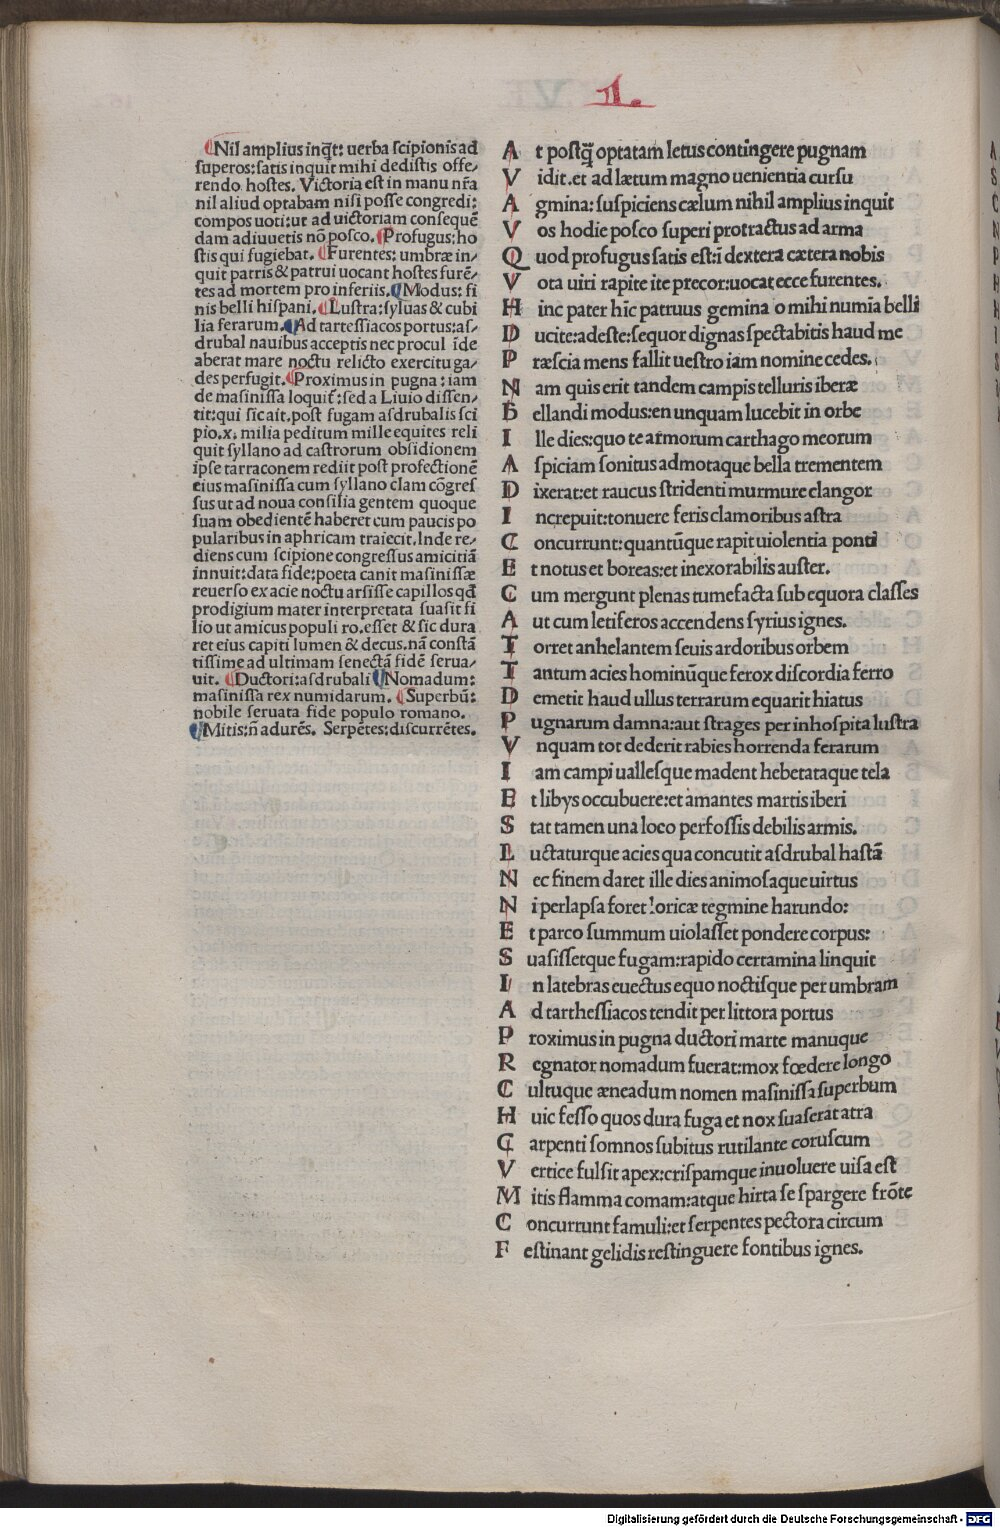 1.
Nil amplius inq̃t: uerba ſcipionis ad
ſuperos: ſatis inquit mihi dediſtis offe/
rendo hoſtes. Victoria eſt in manu nr̃a
nil aliud optabam niſi poſſe congredi:
compos uoti: ut ad uictoriam conſequẽ
dam adiuuetis nõ poſco. Profugus: ho
ſtis qui fugiebat. Furentes: umbræ in/
quit patris & patrui uocant hoſtes furẽ/
tes ad mortem pro inferiis. Modus: fi
nis belli hiſpani. Luſtra: ſyluas & cubi
lia ferarum. Ad tarteſſiacos portus: aſ/
drubal nauibus acceptis nec procul ĩde
aberat mare noctu relicto exercitu ga/
des perfugit. Proximus in pugna: iam
de maſiniſſa loquit᷑: ſed a Liuio diſſen/
tit: qui ſic ait. poſt fugam aſdrubalis ſci
pio .x. milia peditum mille equites reli
quit ſyllano ad caſtrorum obſidionem
ipſe tarraconem rediit poſt profectionẽ
eius maſiniſſa cum ſyllano clam cõgreſ
ſus ut ad noua conſilia gentem quoque
ſuam obedientẽ haberet cum paucis po
pularibus in aphricam traiecit. Inde re/
diens cum ſcipione congreſſus amicitiã
ĩnnuit: data fide: poeta canit maſiniſſæ
reuerſo ex acie noctu arſiſſe capillos qđ
prodigium mater interpretata ſuaſit fi
lio ut amicus populi ro. eſſet & ſic dura
ret eius capiti lumen & decus. nã conſtã
tiſſime ad ultimam ſenectã fidẽ ſerua/
uit. Ductori: aſdrubali Nomadum:
maſiniſſa rex numidarum. Superbũ:
nobile ſeruata fide populo romano.
Mitis: ñ adurẽs. Serpẽtes: diſcurrẽtes.
A t poſtq̃ optatam letus contingere pugnam
V idit. et ad lætum magno uenientia curſu
A gmina: ſuſpiciens cælum nihil amplius inquit
V os hodie poſco ſuperi protractus ad arma
Q uod profugus ſatis eſt: ĩ dextera cætera nobis
V ota uiri rapite ite precor: uocat ecce furentes.
H inc pater hĩc patruus gemina o mihi numĩa belli
D ucite: adeſte: ſequor dignas ſpectabitis haud me
P ræſcia mens fallit ueſtro iam nomine cedes.
N am quis erit tandem campis telluris iberæ
B ellandi modus: en unquam lucebit in orbe
I lle dies: quo te armorum carthago meorum
A ſpiciam ſonitus admotaque bella trementem
D ixerat: et raucus ſtridenti murmure clangor
I ncrepuit: tonuere feris clamoribus aſtra
C oncurrunt: quantũque rapit uiolentia ponti
E t notus et boreas: et inexorabilis auſter.
C um mergunt plenas tumefacta ſub equora claſſes
A ut cum letiferos accendens ſyrius ignes.
T orret anhelantem ſeuis ardoribus orbem
T antum acies hominũque ferox diſcordia ferro
D emetit haud ullus terrarum equarit hiatus
P ugnarum damna: aut ſtrages per inhoſpita luſtra
V nquam tot dederit rabies horrenda ferarum
I am campi ualleſque madent hebetataque tela
E t libys occubuere: et amantes martis iberi
S tat tamen una loco perfoſſis debilis armis.
L uctaturque acies qua concutit aſdrubal haſtã
N ec finem daret ille dies animoſaque uirtus
N i perlapſa foret loricæ tegmine harundo:
E t parco ſummum uiolaſſet pondere corpus:
S uaſiſſetque fugam: rapido certamina linquit
I n latebras euectus equo noctiſque per umbram
A d tartheſſiacos tendit per littora portus
P roximus in pugna ductori marte manuque
R egnator nomadum fuerat: mox fœdere longo
C ultuque æneadum nomen maſiniſſa ſuperbum
H uic feſſo quos dura fuga et nox ſuaſerat atra
C arpenti ſomnos ſubitus rutilante coruſcum
V ertice fulſit apex: criſpamque inuoluere uiſa eſt
M itis flamma comam: atque hirta ſe ſpargere frõte
C oncurrunt famuli: et ſerpentes pectora circum
F eſtinant gelidis reſtinguere fontibus ignes.
Digitalisierung gefördert durch die Deutsche Forschungsgemeinschaft - DFG